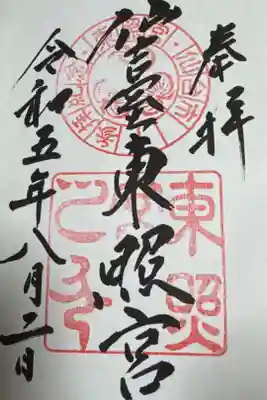 奉拝
仙臺東照宮
令和五年八月二日
東照宮之印